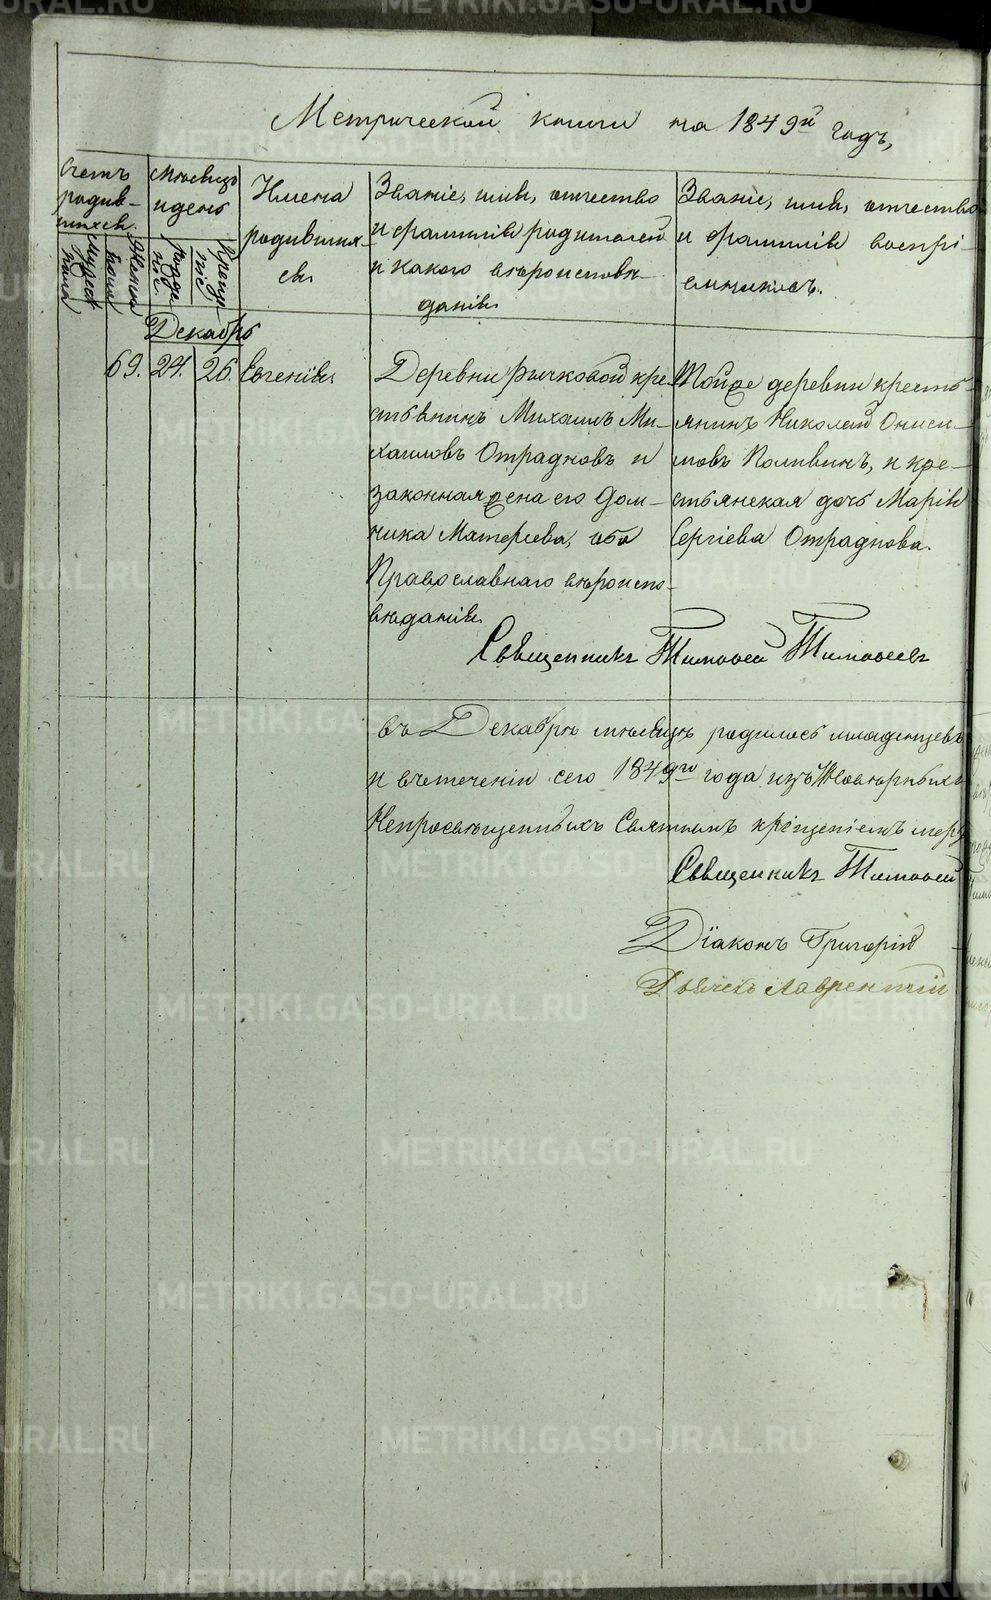 Метрической книги на 1849й годъ,
Счетъ родив-шихся.
Мужеска пола
Женска пола
Мѣсяцъ и день
рожде-нія.
Креще-нія
Имена родившихся.
Званіе, имя, отчество и фамилія родителей и какого вѣроисповѣданія.
Званіе, имя, отчество и фамилія воспріемниковъ.
Декабрь
69. 24. 26. Евгенія.
Деревни Рычковой кре-
стьянинъ Михаилъ Ми-
хаиловъ Отрадновъ и
законная жена его Дом-
ника Матѳеева, оба
Православнаго вѣроиспо-
вѣданія.
Тойже деревни кресть-
янинъ НиколайОниси-
мовъ Поливинъ, и кре-
стьянская дочь Марія
Сергіева Отраднова.
Священникъ Тимоѳей Тимоѳеевъ
въ Декабрѣ мѣсяцѣ родилось младенцевъ
и втеченіи сего 1849го года изъ Иовѣрныхъ
Непросвѣщенныхъ Святымъ крещеніемъ
Священникъ Тимоѳей
Діаконъ Григорій
Дьячекъ Лаврентій
METRIKI.GASO-URAL.RU